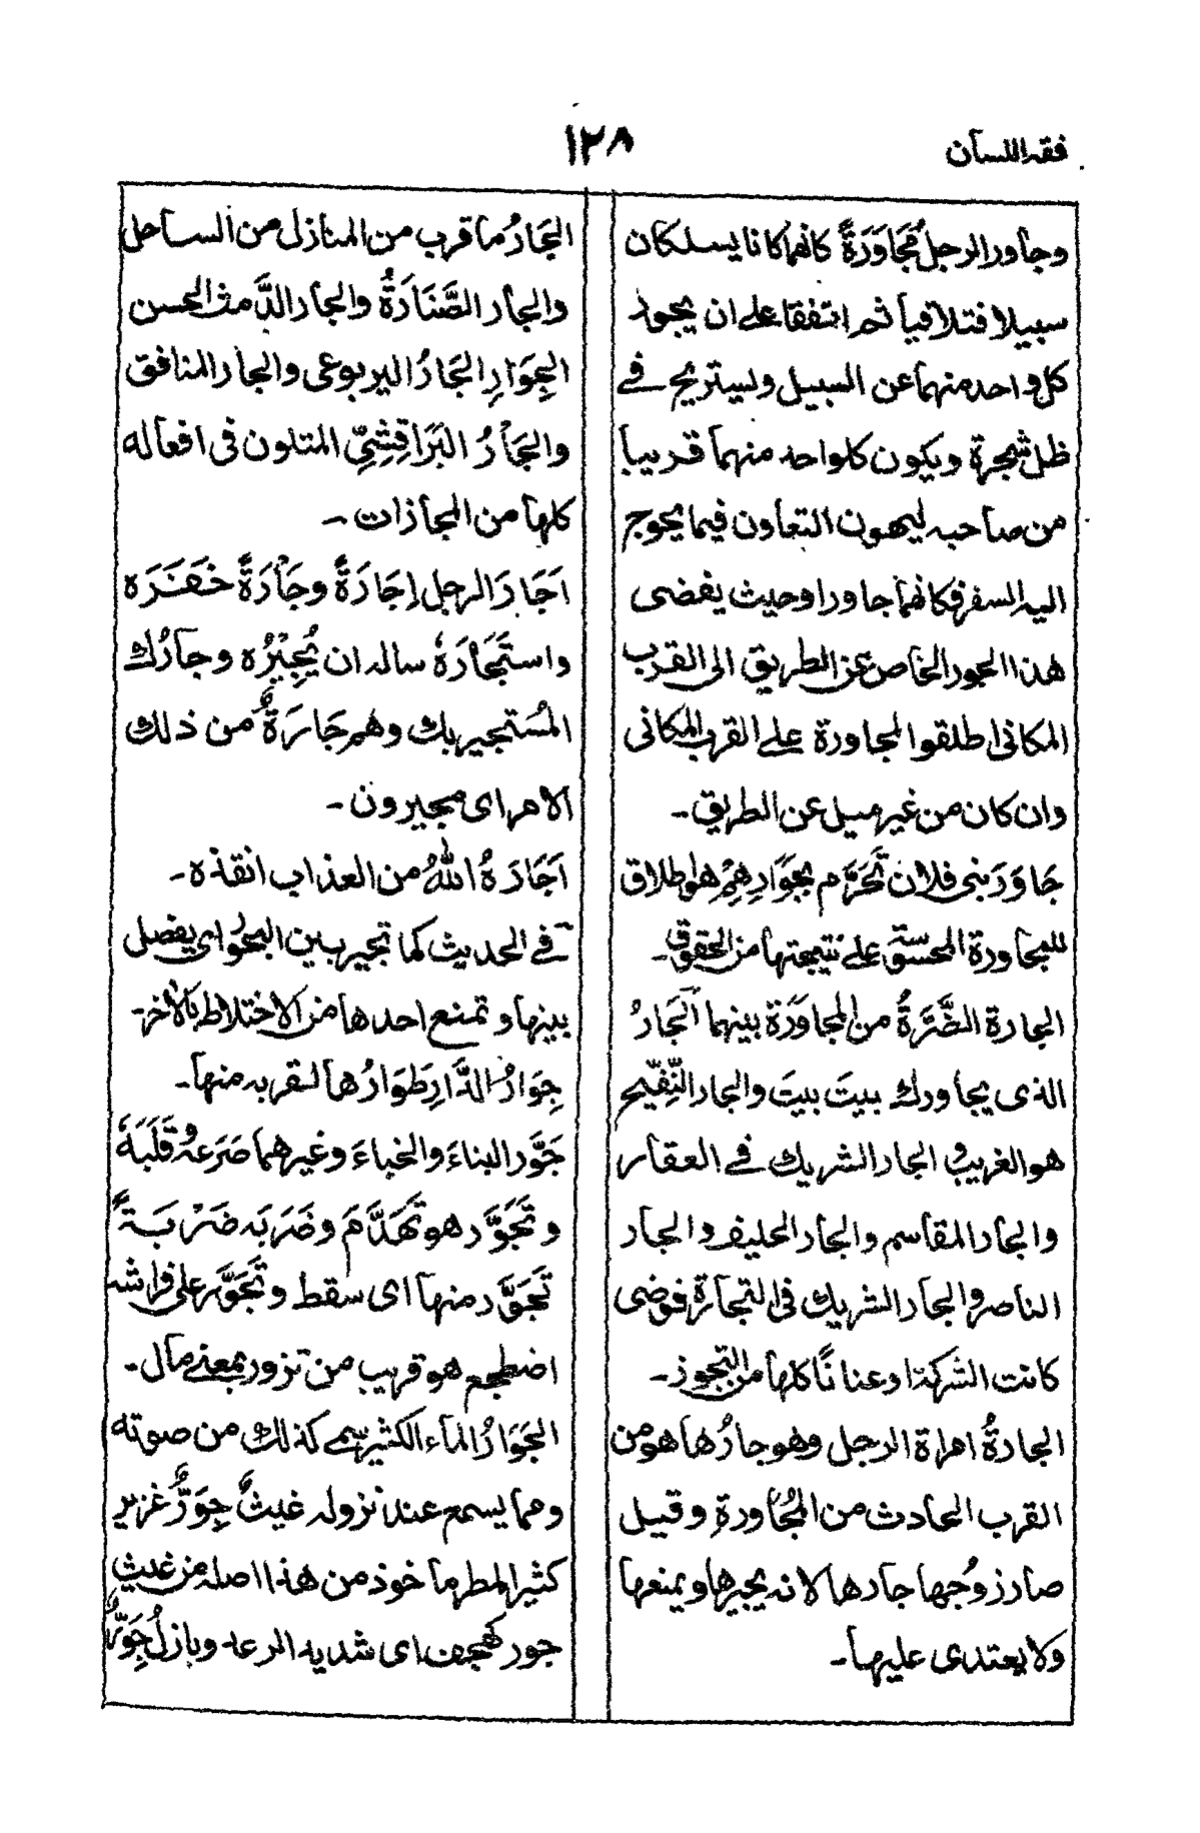 فقه اللسان
١٢٨
وجاور الرجل مُجَاوَرَةً كانهما كانا يسلكان
سبيلا فتلاقيا ثم اتفقا على ان يجوز
كل واحد منهما عن السبيل ويستريح في
ظل شجرة ويكون كلواحد منهما قريبا
من صاحبه ليهون التعاون فيما يحوج
اليه السفر فكانهما جاورا وحيث يفضى
هذا الجور الخاص عن الطريق الى القرب
المكانى اطلقوا المجاورة على القرب المكانى
وان كان من غير ميل عن الطريق۔
جَاوَرَ بنى فلان تَحَرَّم بجِوَارِهِمْ هو اطلاق
للمجاورة المحسّة على نتيجتها من الحقوق۔
الجارة الضَّرَّةُ من المجاوَرَة بينهما اَلجَارُ
الذى يجاورك بيتَ بيتَ والجار النِّفِّيح
هو الغريب و الجار الشريك في العقار
والجار المقاسم والجار الحليف والجار
الناصر والجار الشريك فى التجارة فوضى
كانت الشركة او عنانًا كلها من التجوز۔
الجارةُ امراة الرجل وهو جارُها هو من
القرب الحادث من المُجَاورةِ وقيل
صار زوجُها جارها لانه يجيرها ويمنعها
ولا يعتدى عليها۔
الجَارُ ما قرب من المنازل من الساحل
والجار الصَّنَارَةُ والجار الدَّمث الحسن
الجِوَارِ الجَارُ اليربوعى والجار المنافق
والجَارُ البَرَاقِشِىِّ المتلون فى افعاله
كلها من المجازات۔
اَجَارَ الرجل إجَارَةً وجَارَةً خَفَرَه
واستَجَارَهُ ساله ان يُجِيْرُه وجارُك
المُستجير بك وهم جَارَةٌ من ذلك
الامر اى مجيرون۔
اَجَارَهُ اللهُ من العذاب انقذه۔
في الحديث كما تجير بين البحُور اى يفصل
بينها وتمنع احدها من الاختلاط بالاخر۔
جِوَارُ الدَّارِ طَوَارُها لقربه منها۔
جَوَّر البناءَ والخباءَ وغيرهما صَرَعهُ وقَلَبَهُ
وتَجَوَّر هو تَهَدَّمَ وضَرَبَه ضَرْبَةً
تَجَوَّر منها اى سقط وتَجَوَّر على فراشه
اضطجع هو قريب من تزور بمعنى مال۔
الجَوَارُ الماء الكثير سمى كذلك من صوته
ومما يسمع عند نزوله غيثٌ جِوَرٌّ غزير
كثير المطر ماخوذ من هذا اصله من غيث
جور كهجف اى شديد الرعد وبازلُ جِوَرٌّ